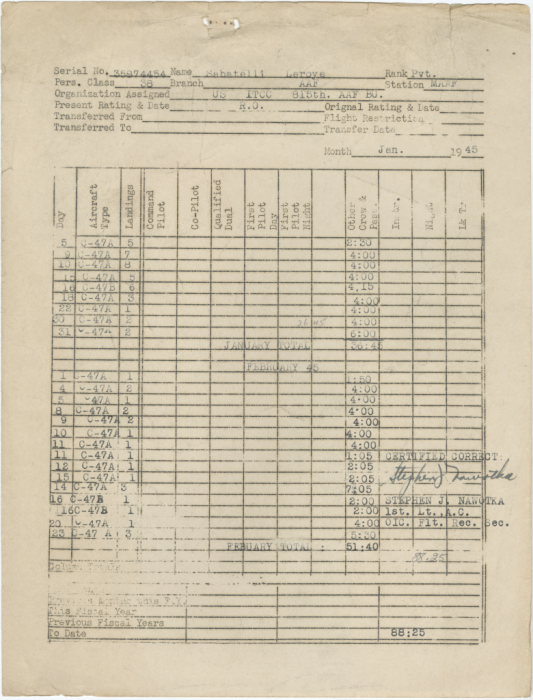 Serial No. 35874454 Name Sabatelli Leroye Rank Pvt.
Pers. Class 38 Branch AAF Station MAAF
Organization Assigned US ITCC 815th. AAF BU.
Present Rating & Date R.O. Orignal Rating & Date
Transferred From Flight Restriction
Transferred To Transfer Date
Month Jan. 1945
Day Aircraft Type Landings Command Pilot Co-Pilot Qualified Dual First Pilot Day First Pilot Night Other Crew & Pass. Instr. Night Lk Tr
5 C-47A 5 2:30
9 C-47A 7 4:00
10 C-47A 8 4:00
15 C-47A 5 4:00
16 C-47B 6 4,15
18 C-47A 3 4:00
22 C-47A 1 4:00
30 C-47A 2 4:00
31 C-47A 2 6:00
JANUARY TOTAL 36:45
FEBRUARY 45
1 C-47A 1 1:50
4 C-47A 2 4:00
5 C-47A 1 4:00
8 C-47A 2 4:00
9 C-47A 2 4:00
10 C-47A 1 4:00
11 C-47A 1 4:00
11 C-47A 1 1:05 CERTIFIED CORRECT:
12 C-47A 1 2:05 Stephen J Nawotka
15 C-47A 1 2:05
14 C-47A 3 7:05
16 C-47B 1 2:00 STEPHEN J. NAWOTKA
16C-47B 1 2:00 1st. Lt.,A.C.
20 C-47A 1 4:00 OIC. Flt. Rec. Sec.
23 C-47 A 3 5:30
FEBUARY TOTAL : 51:40
This Fiscal Year
Previous Fiscal Years
To Date 88:25